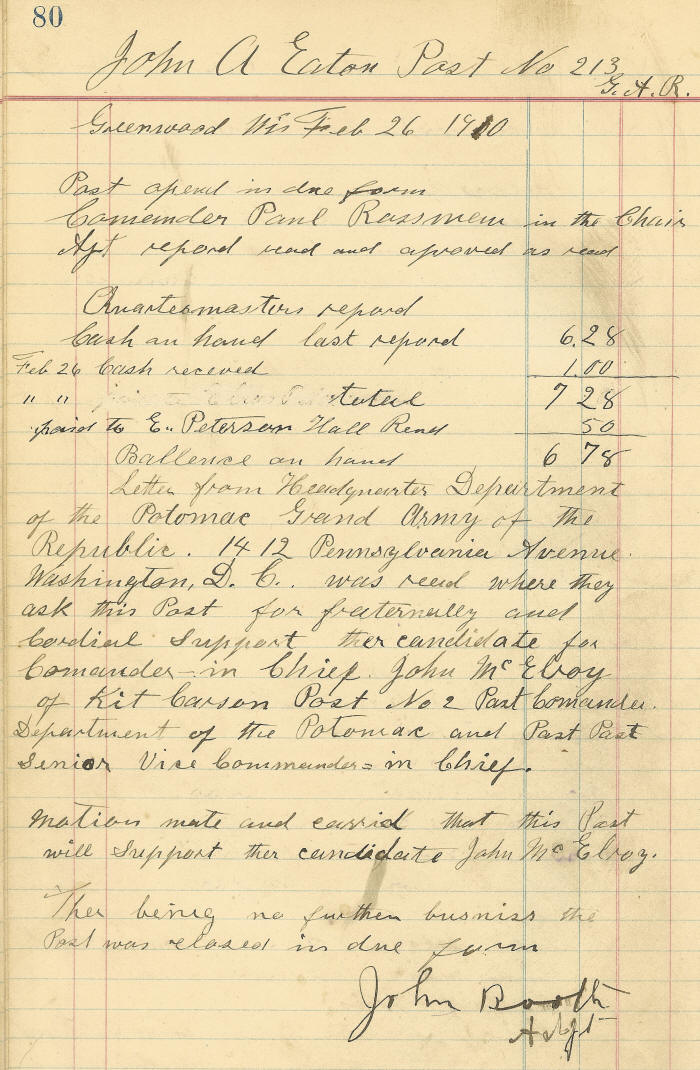 80
John A Eaton Post No 213
G. A. R.
Greenwood Wis Feb 26 1910
Post opend in due form
Comander Paul Rossman in the Chair
Ajt repord read and aproved as read
Quartermasters repord
Cash on hand last repord 6.28
Feb 26 Cash receved 1.00
" " total 7 28
paid to E. Peterson Hall Rend 50
Ballence on hand 6 78
Letter from Headquarter Department
of the Potomac Grand Army of the
Republic. 1412 Pennsylvania Avenue.
Washington, D. C.. was read where they
ask this Post for fraternally and
Cordial Support ther candidate for
Comander-in Chief. John McElroy
of Kit Carson Post No 2 Past Comander.
Department of the Potomac and Past Past
Senior Vice Commander= in Chief.
Motion mate and carrid that this Post
will Support ther candidate John McElroy.
Ther being no further busniss the
Post was closed in due form
John Booth
Adjt